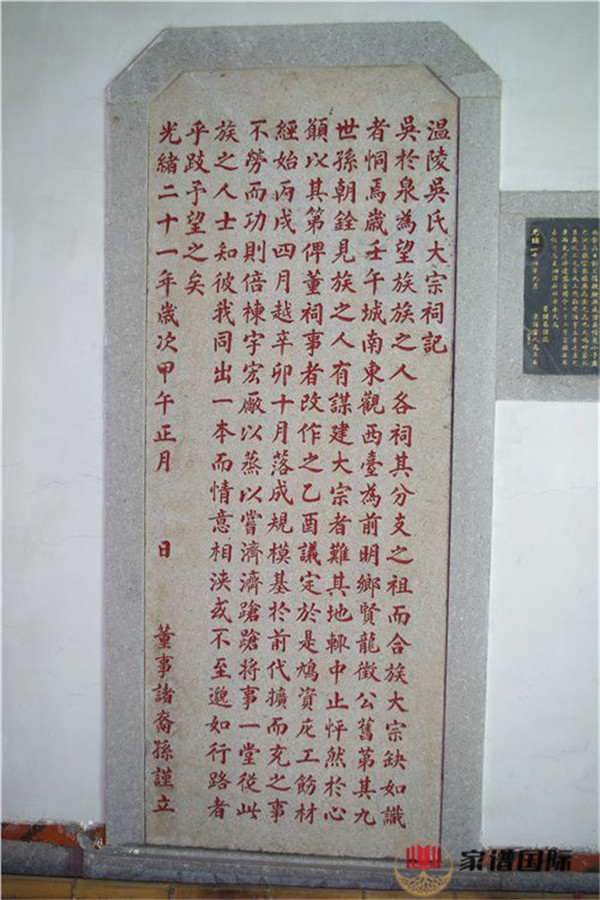 温陵吳氏大宗祠記
吳於泉為望族族之人各祠其分支之祖而合族大宗缺如識
者恫焉歲壬午城南東觀西臺為前明鄉賢龍徵公舊第其九
世孫朝銓見族之人有謀建大宗者難其地輒中止怦然於心
願以其第俾董祠事者改作之乙酉議定於是鳩資庀工飭材
經始丙戌四月越辛卯十月落成規模基於前代擴而充之事
不勞而功則倍棟宇宏廠以蒸以嘗濟濟蹌蹌將事一堂從此
族之人士知彼我同出一本而情意相浹或不至邈如行路者
乎跂予望之矣
光緒二十一年歲次甲午正月 日 董事諸裔孫謹立
家谱国际